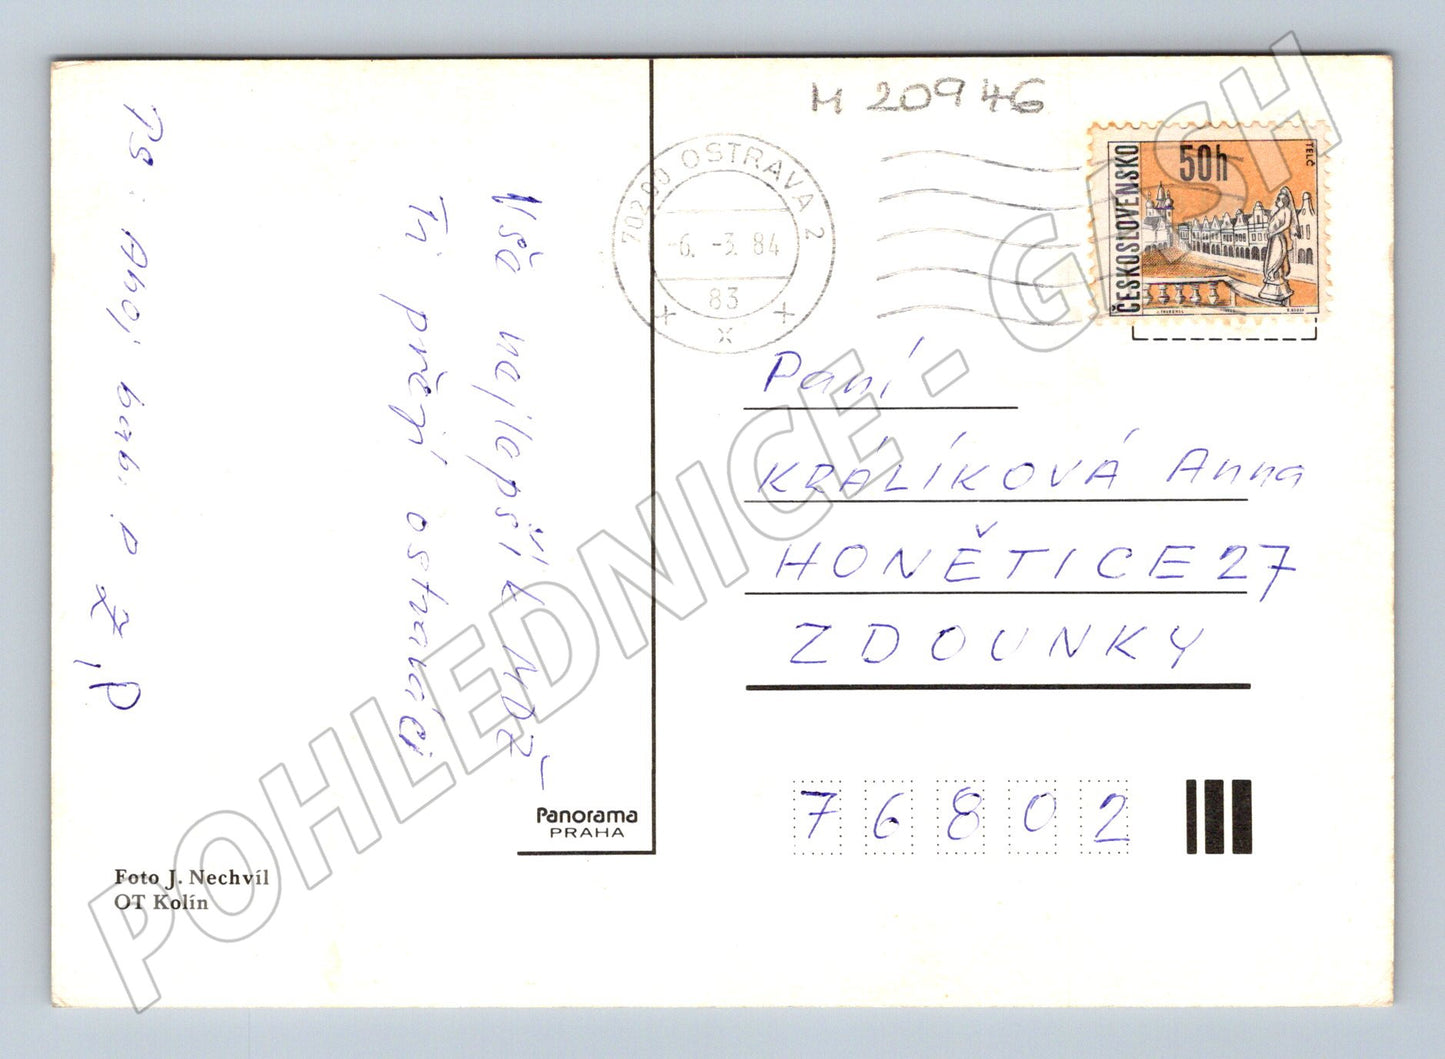 M 20946
702 00 OSTRAVA 2
-6. -3. 84
83
x
ČESKOSLOVENSKO
50h
TELČ
Vše nejlepší k MDŽ
Ti přejí ostraváci
Ps: Ahoj bab. P
Paní
KRÁLÍKOVÁ Anna
HONĚTICE 27
ZDOUNKY
76802
Panorama
PRAHA
Foto J. Nechvíl
OT Kolín
POHLEDNICE - GASH